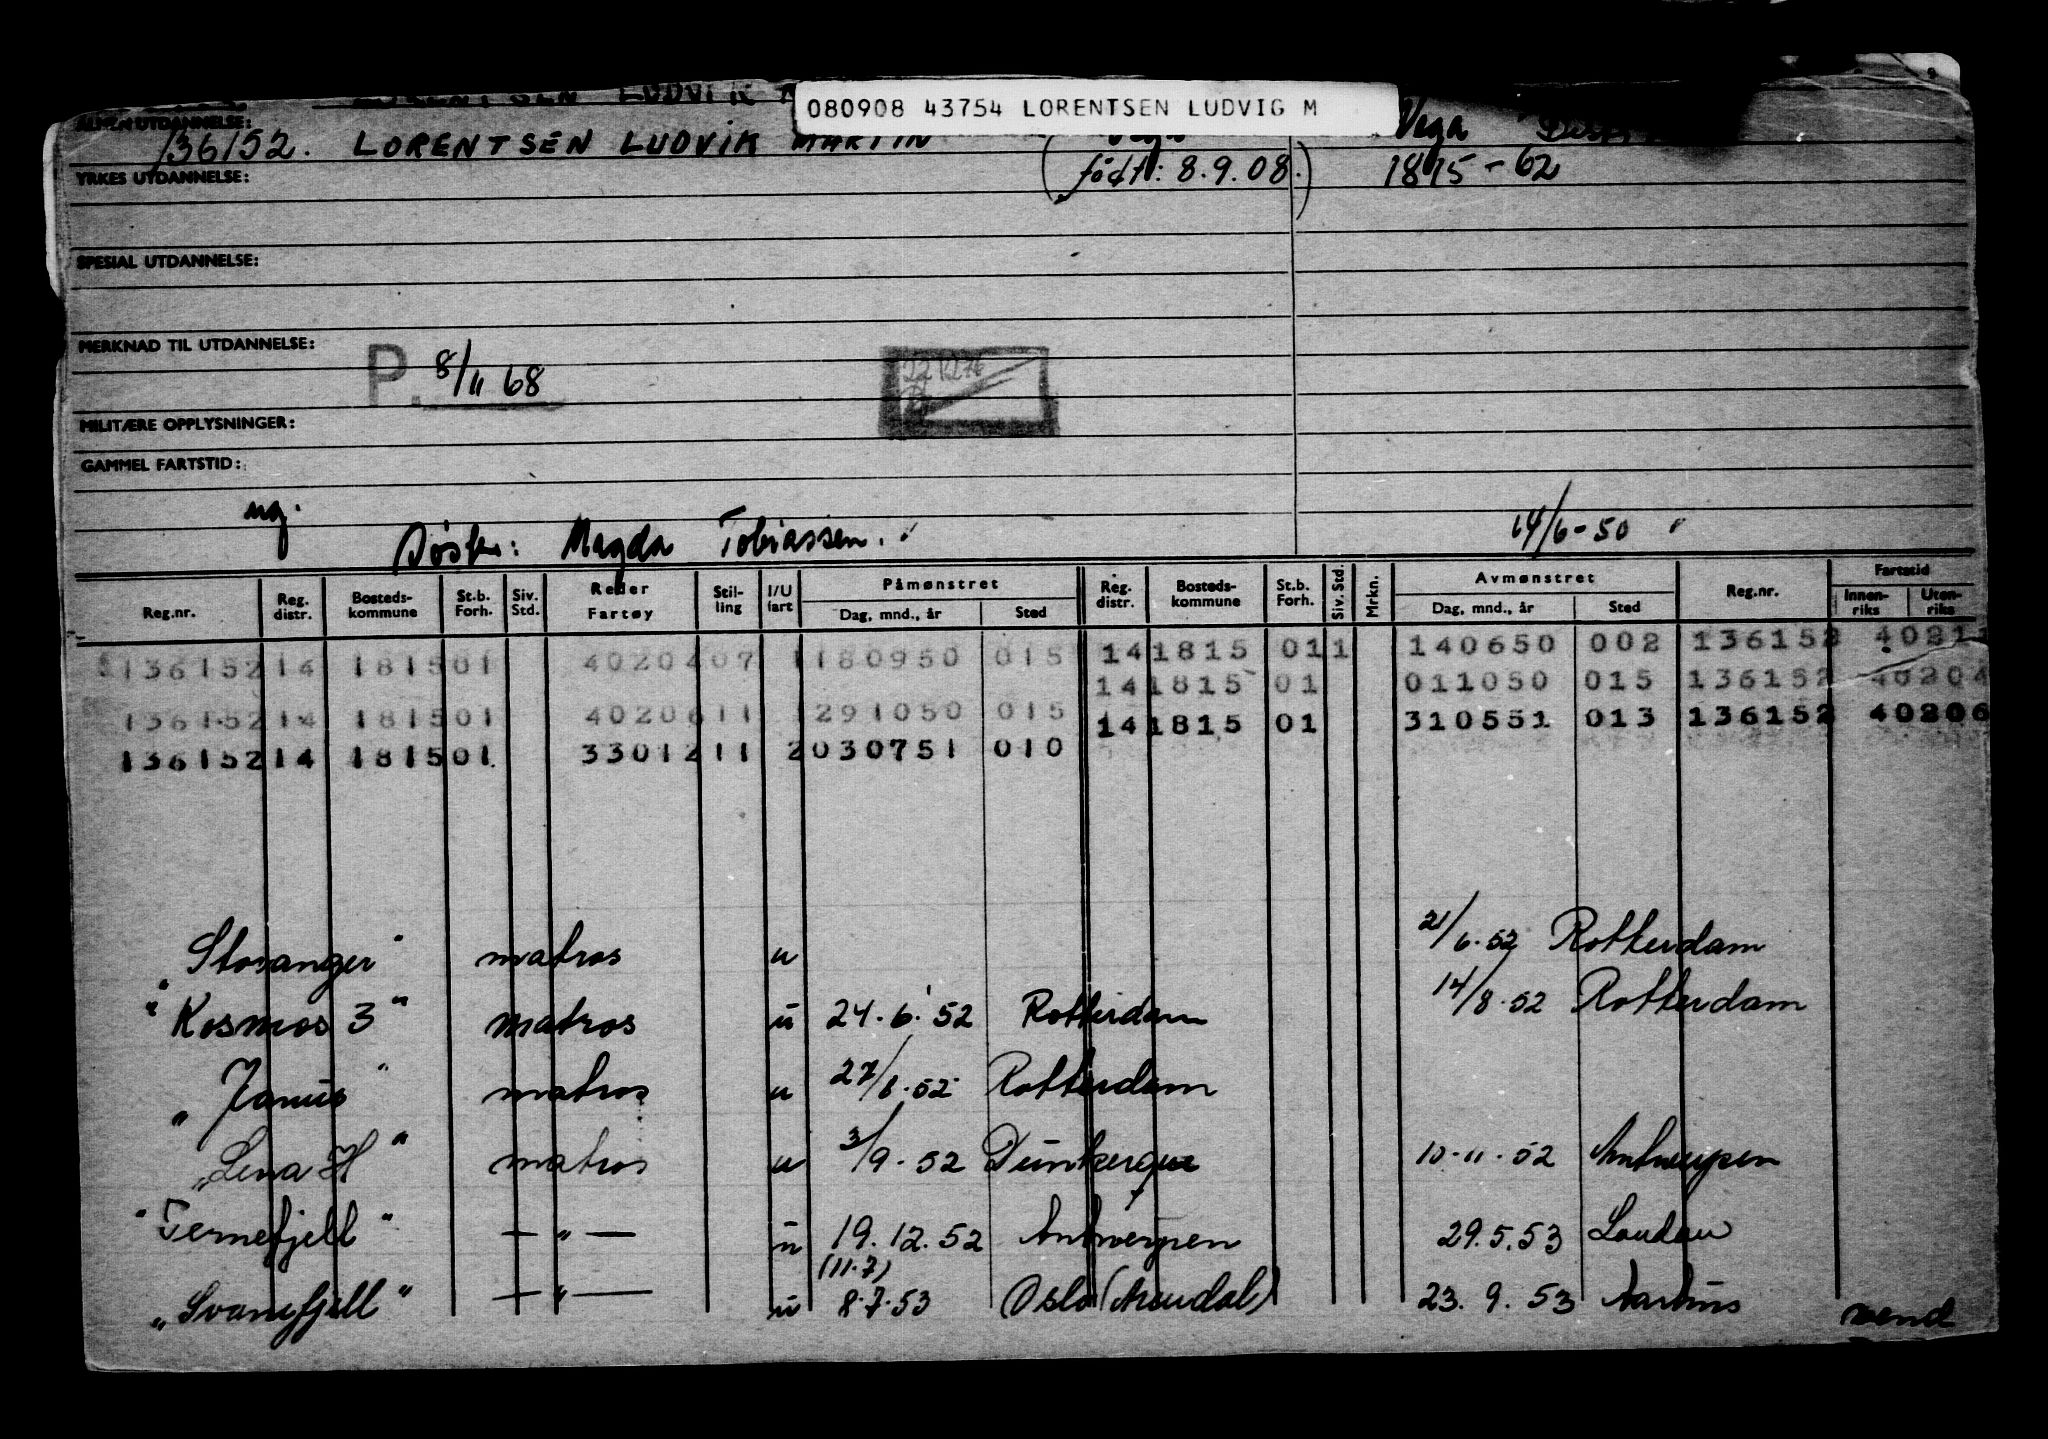 080908 43754 LORENTSEN LUDVIG M
ALMEN UTDANNELSE:
136152. LORENTSEN LUDVIK MARTIN
Vega
YRKES UTDANNELSE:
(født: 8.9.08.) 1815-62
SPESIAL UTDANNELSE:
MERKNAD TIL UTDANNELSE:
P. 8/11 68
MILITÆRE OPPLYSNINGER:
GAMMEL FARTSTID:
ug.
Søster: Magda Tobiassen. 14/6-50
Reg.nr. Reg. distr. Bosteds-kommune St.b. Forh. Siv. Std. Reder Fartøy Stil-ling I/U fart Påmønstret Dag, mnd., år Sted Reg. distr. Bosteds-kommune St.b. Forh. Siv. Std. Mrkn. Avmønstret Dag, mnd., år Sted Reg.nr. Fartstid Innen-riks Uten-riks
14 1815 01 1 140650 002 136152 40211
136152 14 1815 01 4020407 1 180950 015
14 1815 01 011050 015 136152 40204
136152 14 1815 01 4020611 1 291050 015
14 1815 01 310551 013 136152 40206
136152 14 1815 01 3301211 2 030751 010
"Stosanger" matros u 21/6.52 Rotterdam
"Kosmos 3" matros u 24.6.52 Rotterdam 14/8.52 Rotterdam
"Janus" matros u 27/8.52 Rotterdam
"Lena H" matros u 3/9.52 Dunkerque 10-11-52 Antwerpen
"Ternefjell" — " — u 19.12.52 Antwerpen 29.5.53 London
(11.7)
"Svanefjell" — " — u 8.7.53 Oslo (Arendal) 23.9.53 Aarhus
vend